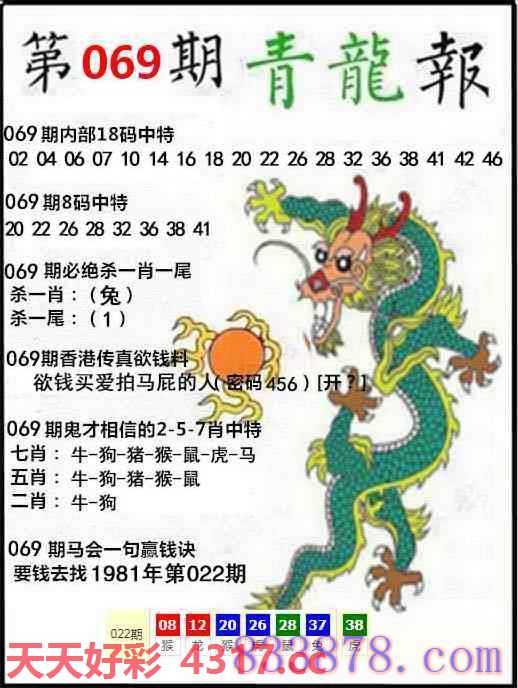 第069期 青龍報
069期内部18码中特
02 04 06 07 10 14 16 18 20 22 26 28 32 36 38 41 42 46
069期8码中特
20 22 26 28 32 36 38 41
069 期必绝杀一肖一尾
杀一肖：（兔）
杀一尾：（1）
069期香港传真欲钱料
欲钱买爱拍马屁的人(密码456)[开？]
069期鬼才相信的2-5-7肖中特
七肖：牛-狗-猪-猴-鼠-虎-马
五肖：牛-狗-猪-猴-鼠
二肖：牛-狗
069 期马会一句赢钱诀
要钱去找1981年第022期
022期 08 12 20 26 28 37 38
猴 龙 猴 虎 鼠 兔 虎
天天好彩 4317.cc
878.com